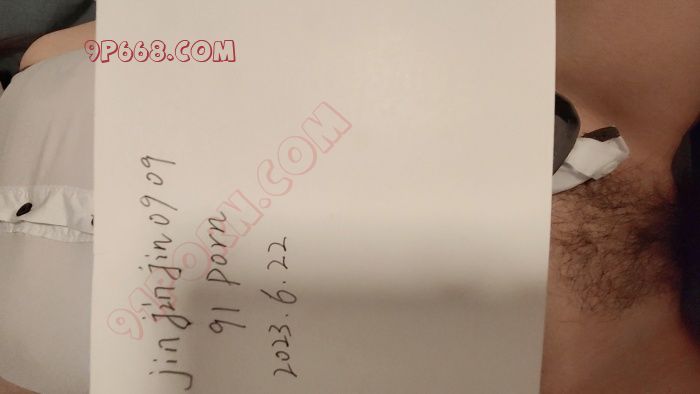 9P668.COM
91PORN.COM
jinjinjin0909
91 porn
2023.6.22